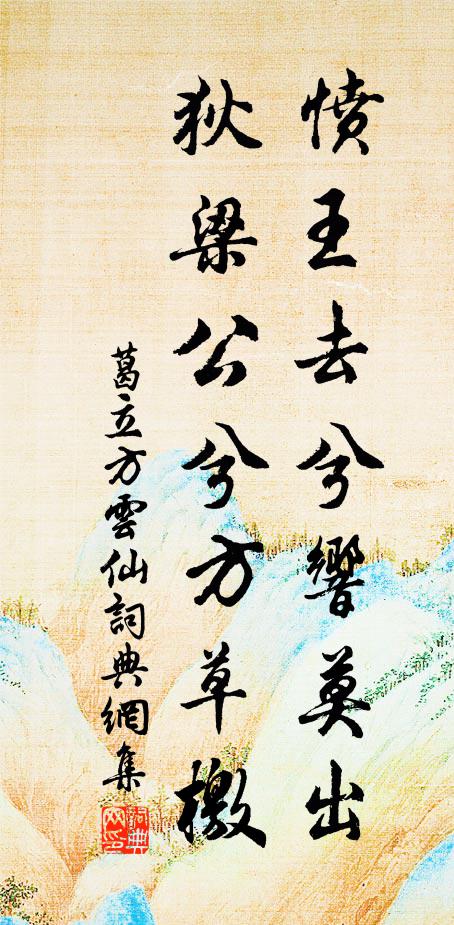 憤王去兮響莫出
狄梁公兮方草檄
葛立方雲仙詞典網集
詞典